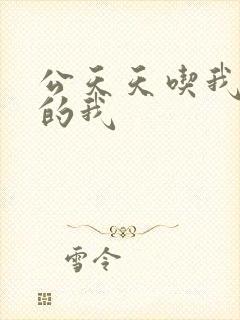 公天天喫我
的我
雪令